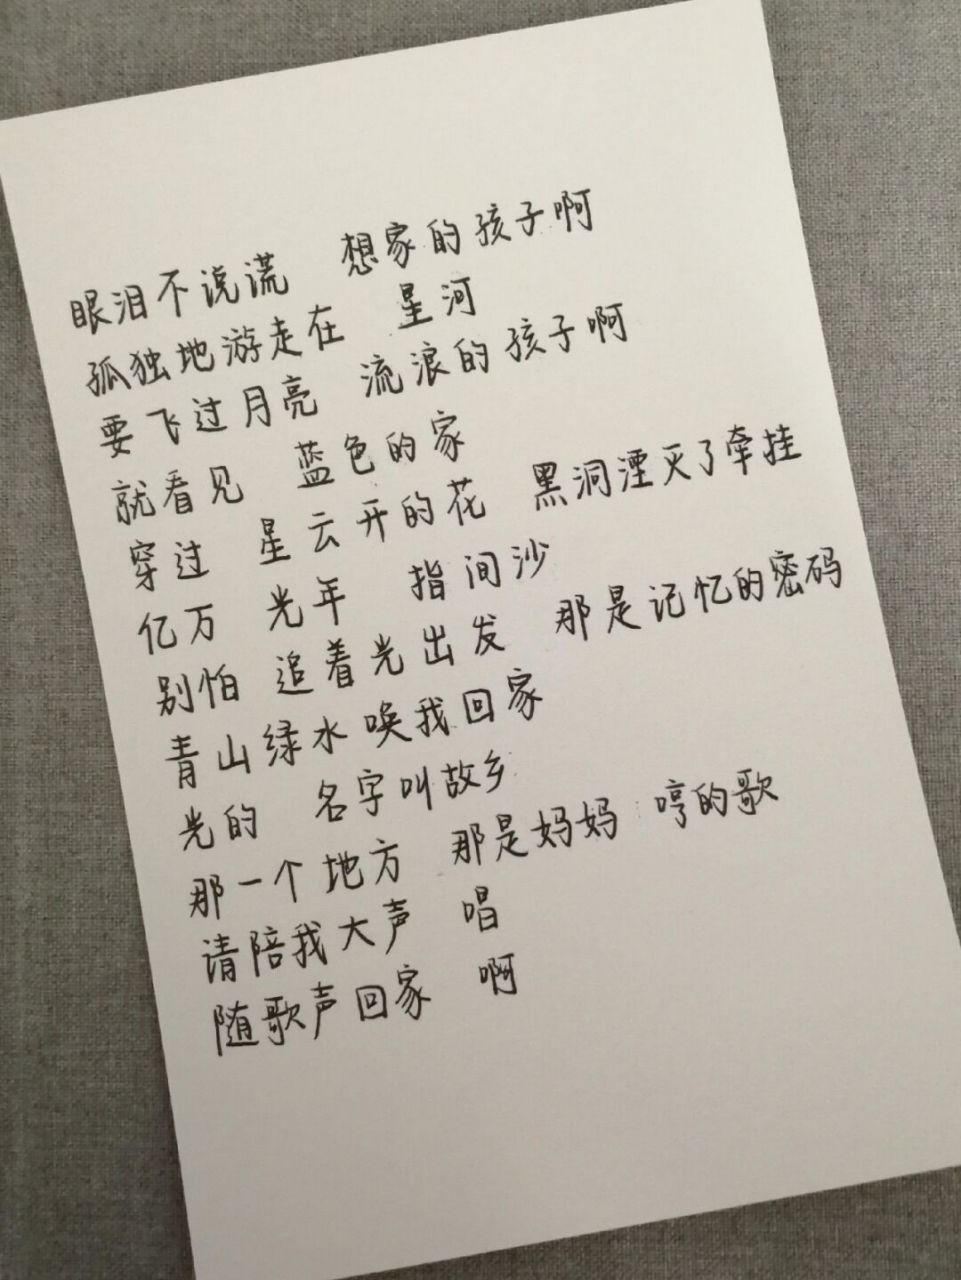 眼泪不说谎 想家的孩子啊
孤独地游走在 星河
要飞过月亮 流浪的孩子啊
就看见 蓝色的家
穿过 星云开的花 黑洞湮灭了牵挂
亿万 光年 指间沙
别怕 追着光出发 那是记忆的密码
青山绿水唤我回家
光的 名字叫故乡
那一个地方 那是妈妈 哼的歌
请陪我大声 唱
随歌声回家 啊